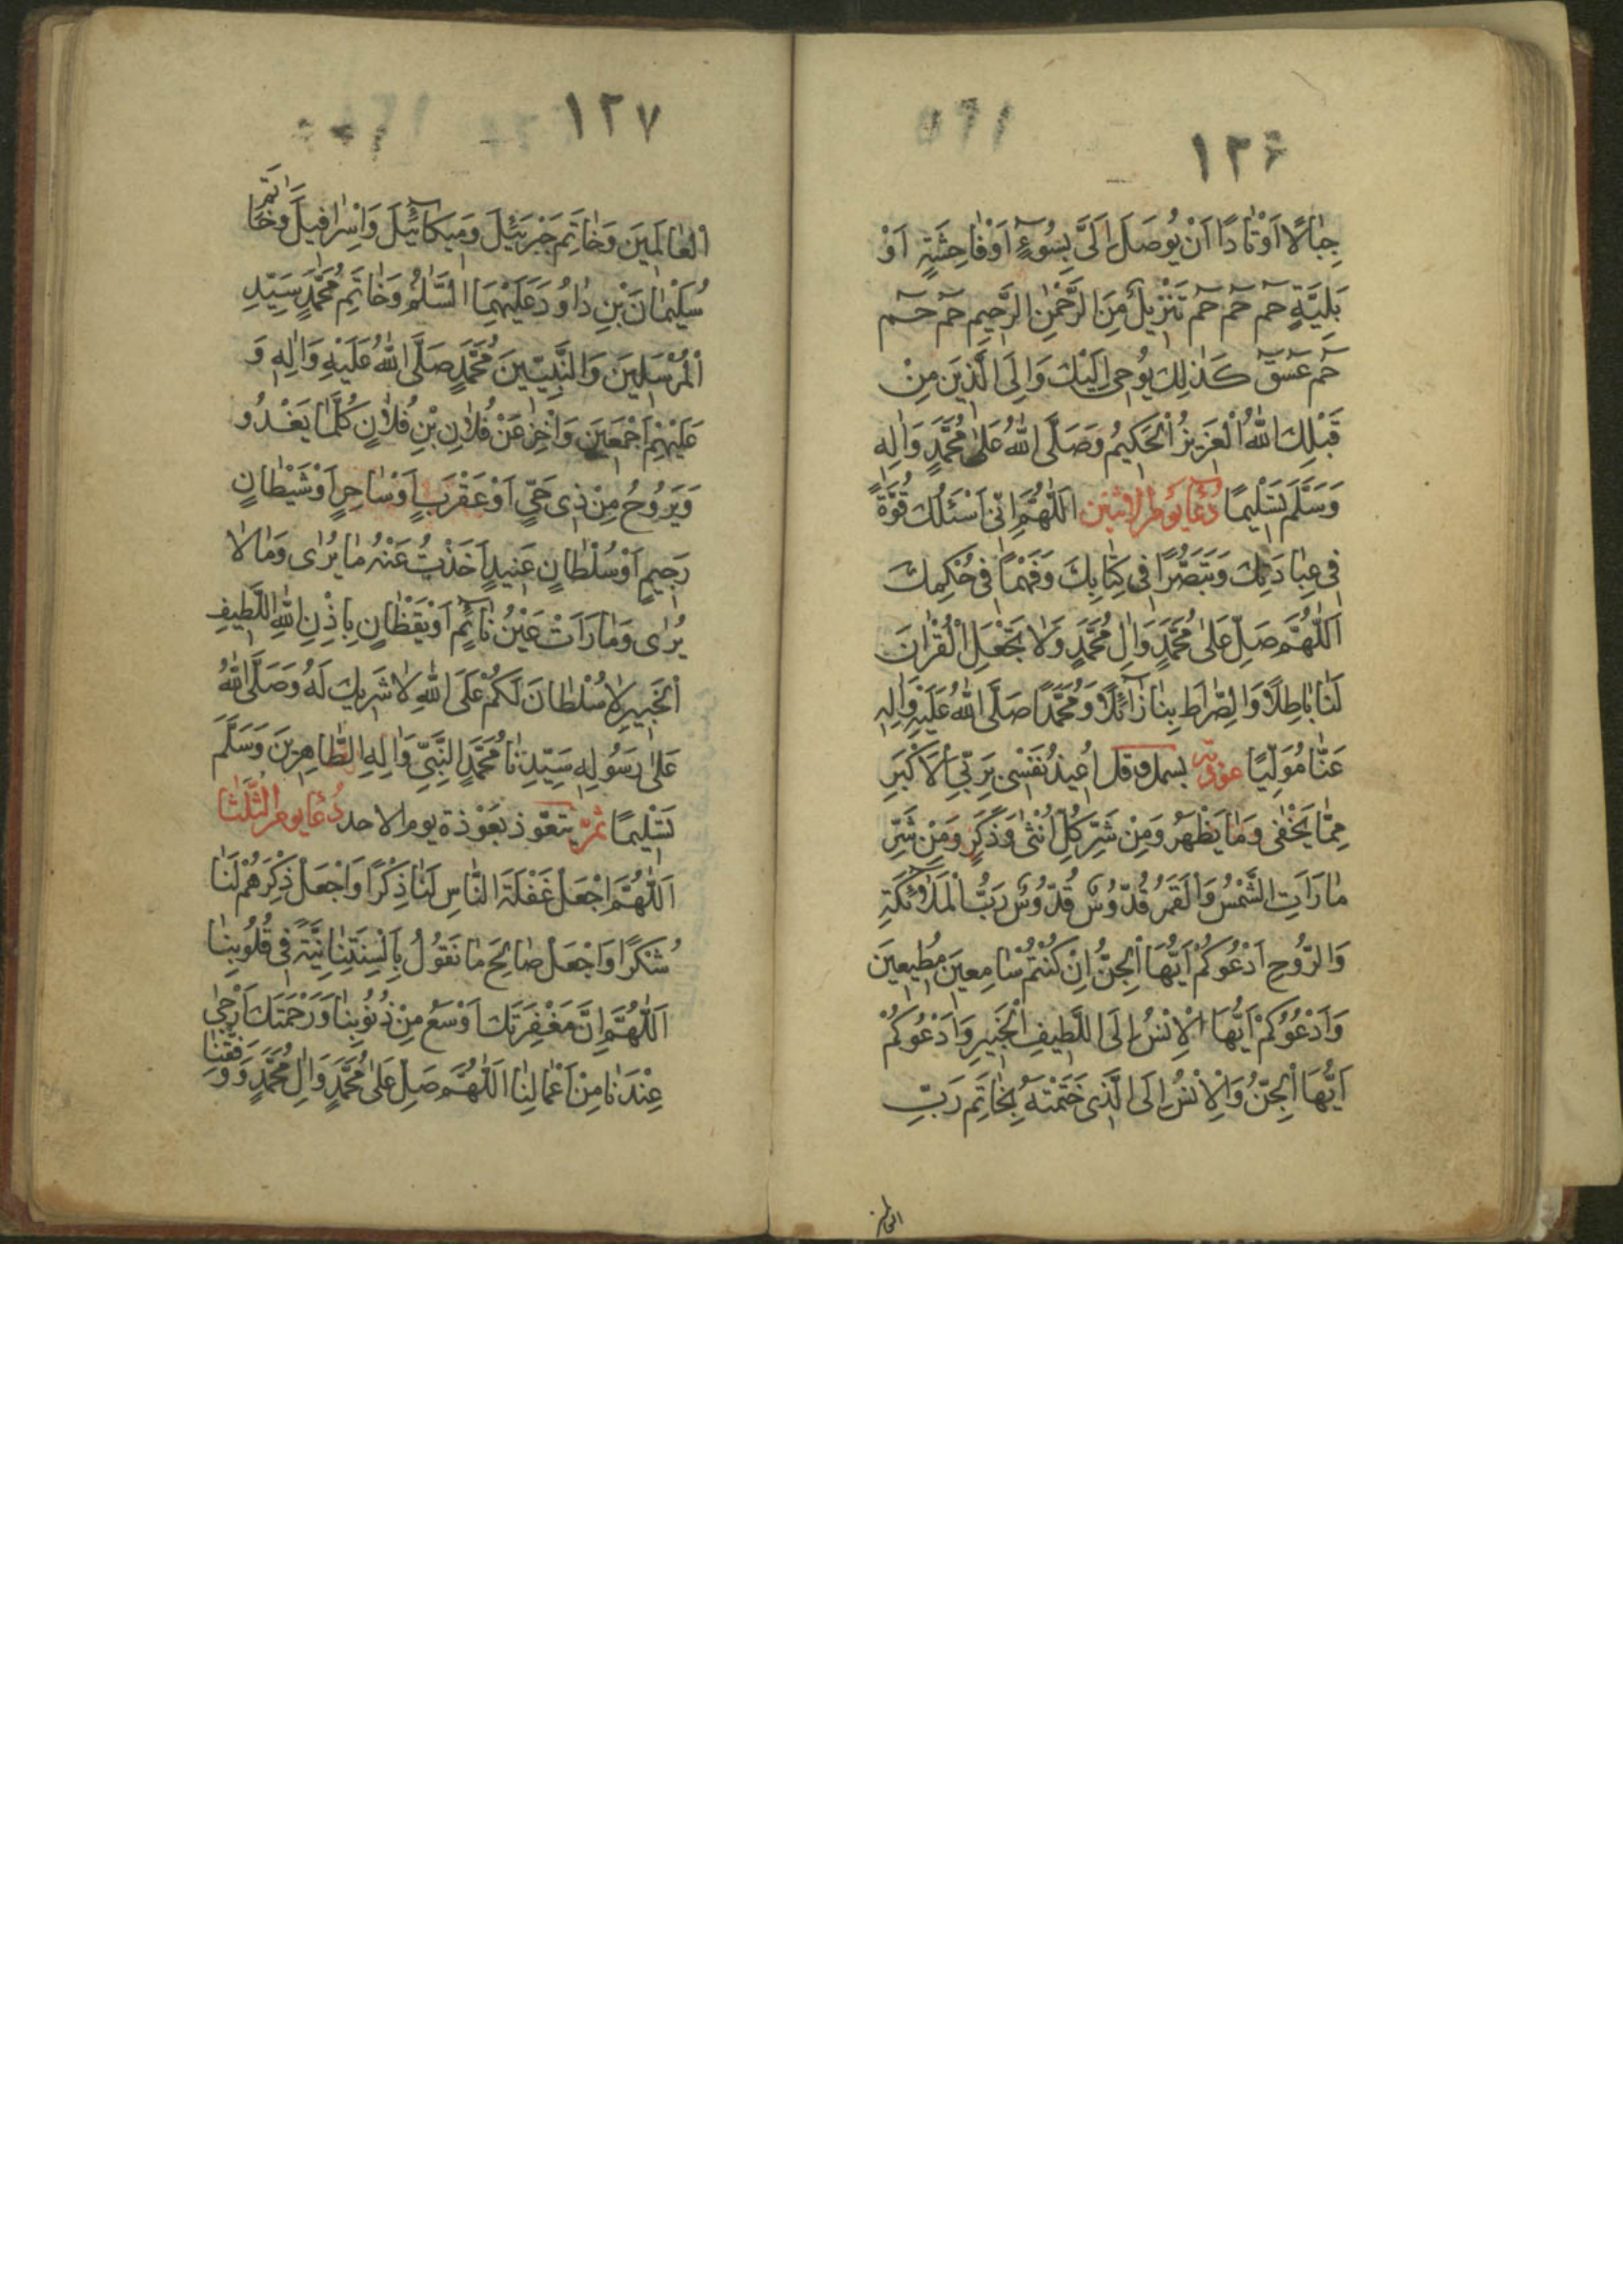 ١٢٦
جِبٰالًا اَوْتٰادًا اَنْ يُوصَلَ اِلَىَّ بِسُوۤءٍ اَوْ فٰاحِشَةٍ اَوْ
بَلِيَّةٍ حٰمۤ حٰمۤ حٰمۤ تَنْزِيلٌ مِنَ الرَّحْمٰنِ الرَّحِيمِ حٰمۤ حٰمۤ
حٰمۤ عۤسۤقۤ كَذٰلِكَ يُوحٖى اِلَيْكَ وَاِلَى الَّذِينَ مِنْ
قَبْلِكَ اللّٰهُ الْعَزِيزُ الْحَكِيمُ وَصَلَّى اللّٰهُ عَلٰى مُحَمَّدٍ وَاٰلِهِ
وَسَلَّمَ تَسْلِيمًا دُعٰاۤءِ يَوْمِ الاِثْنَيْنِ اَللّٰهُمَّ اِنّى اَسْئَلُكَ قُوَّةً
فِى عِبٰادَتِكَ وَتَبَصُّرًا فِى كِتٰابِكَ وَفَهْمًا فِى حُكْمِكَ
اَللّٰهُمَّ صَلِّ عَلٰى مُحَمَّدٍ وَاٰلِ مُحَمَّدٍ وَلٰا تَجْعَلِ الْقُرْاٰنَ
لَنٰا بٰاطِلًا وَالصِّرٰاطَ بِنٰا زٰاۤئِلًا وَمُحَمَّدًا صَلَّى اللّٰهُ عَلَيْهِ وَاٰلِهِ
عَنّٰا مُوَلِّيًا عوذته بسمله وقل اُعِيذُ نَفْسٖى بِرَبِّىَ الْاَكْبَرِ
مِمّٰا يَخْفٰى وَمٰا يَظْهَرُ وَمِنْ شَرِّ كُلِّ اُنْثٰى وَذَكَرٍ وَمِنْ شَرِّ
مٰا رَاَتِ الشَّمْسُ وَالْقَمَرُ قُدُّوسٌ قُدُّوسٌ رَبُّ الْمَلٰاۤئِكَةِ
وَالرُّوحِ اَدْعُوكُمْ اَيُّهَا الْجِنُّ اِنْ كُنْتُمْ سٰامِعِينَ مُطِيعِينَ
وَاَدْعُوكُمْ اَيُّهَا الْاِنْسُ اِلَى اللَّطِيفِ الْخَبِيرِ وَاَدْعُوكُمْ
اَيُّهَا الْجِنُّ وَالْاِنْسُ اِلَى الَّذِى خَتَمْتُهُ بِخٰاتَمِ رَبِّ
العالمين
١٢٧
الْعٰالَمِينَ وَخٰاتَمِ جَبْرَئِيلَ وَمِيكٰاۤئِيلَ وَاِسْرٰافِيلَ وَخٰاتَمِ
سُلَيْمٰانَ بْنِ دٰاوُدَ عَلَيْهِمَا السَّلٰمُ وَخٰاتَمِ مُحَمَّدٍ سَيِّدِ
الْمُرْسَلِينَ وَالنَّبِيِّينَ مُحَمَّدٍ صَلَّى اللّٰهُ عَلَيْهِ وَاٰلِهِ وَ
عَلَيْهِمْ اَجْمَعِينَ وَاَخِّرْ عَنْ فُلٰانِ بْنِ فُلٰانٍ كُلَّمٰا يَغْدُو
وَيَرُوحُ مِنْ ذِى حَىٍّ اَوْ عَقْرَبٍ اَوْ سٰاحِرٍ اَوْ شَيْطٰانٍ
رَجِيمٍ اَوْ سُلْطٰانٍ عَنِيدٍ اَخَذْتُ عَنْهُ مٰا يُرٰى وَمٰا لٰا
يُرٰى وَمٰا رَاَتْ عَيْنُ نٰاۤئِمٍ اَوْ يَقْظٰانٍ بِاِذْنِ اللّٰهِ اللَّطِيفِ
الْخَبِيرِ لٰا سُلْطٰانَ لَكُمْ عَلَى اللّٰهِ لٰا شَرِيكَ لَهُ وَصَلَّى اللّٰهُ
عَلٰى رَسُولِهِ سَيِّدِنٰا مُحَمَّدٍ النَّبِىِّ وَاٰلِهِ الطّٰاهِرِينَ وَسَلَّمَ
تَسْلِيمًا ثمّ يتعوّذ بعَوْذة يوم الاحد دُعٰاۤءِ يوم الثَّلٰثٰا
اَللّٰهُمَّ اجْعَلْ غَفْلَةَ النّٰاسِ لَنٰا ذِكْرًا وَاجْعَلْ ذِكْرَهُمْ لَنٰا
شُكْرًا وَاجْعَلْ صٰالِحَ مٰا نَقُولُ بِاَلْسِنَتِنٰا نِيَّةً فِى قُلُوبِنٰا
اَللّٰهُمَّ اِنَّ مَغْفِرَتَكَ اَوْسَعُ مِنْ ذُنُوبِنٰا وَرَحْمَتَكَ اَرْجٰى
عِنْدَنٰا مِنْ اَعْمٰالِنٰا اَللّٰهُمَّ صَلِّ عَلٰى مُحَمَّدٍ وَاٰلِ مُحَمَّدٍ وَوَفِّقْنٰا